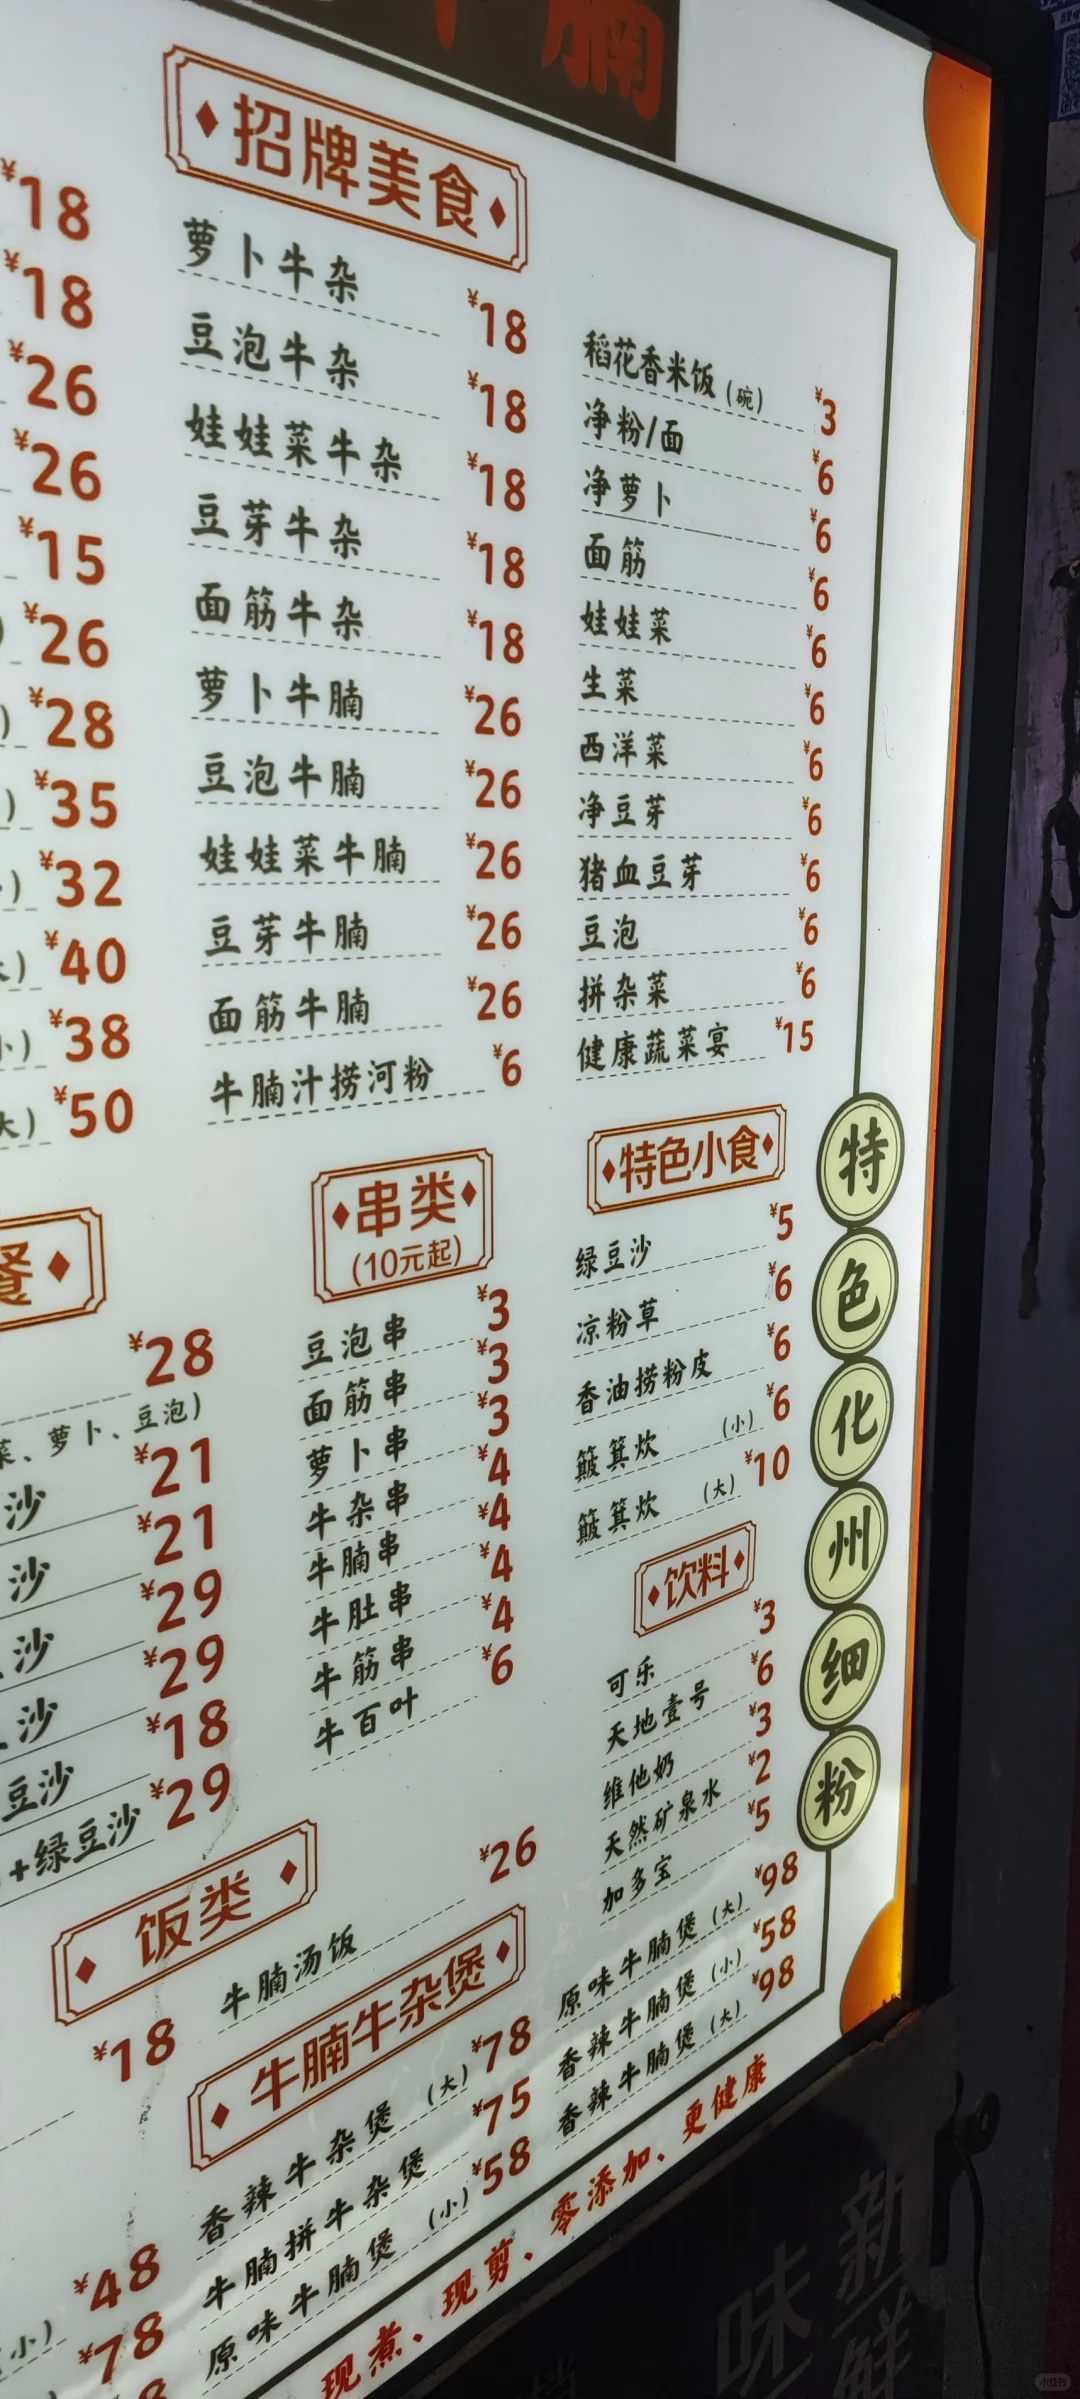 腩
招牌美食
¥18
¥18
¥26
¥26
¥15
¥26
¥28
¥35
¥32
大) ¥40
小) ¥38
大) ¥50
萝卜牛杂 ¥18
豆泡牛杂 ¥18
娃娃菜牛杂 ¥18
豆芽牛杂 ¥18
面筋牛杂 ¥18
萝卜牛腩 ¥26
豆泡牛腩 ¥26
娃娃菜牛腩 ¥26
豆芽牛腩 ¥26
面筋牛腩 ¥26
牛腩汁捞河粉 ¥6
稻花香米饭(碗) ¥3
净粉/面 ¥6
净萝卜 ¥6
面筋 ¥6
娃娃菜 ¥6
生菜 ¥6
西洋菜 ¥6
净豆芽 ¥6
猪血豆芽 ¥6
豆泡 ¥6
拼杂菜 ¥6
健康蔬菜宴 ¥15
餐
¥28
菜、萝卜、豆泡)
沙 ¥21
沙 ¥21
沙 ¥29
沙 ¥29
豆沙 ¥18
+绿豆沙 ¥29
串类
(10元起)
豆泡串 ¥3
面筋串 ¥3
萝卜串 ¥3
牛杂串 ¥4
牛腩串 ¥4
牛肚串 ¥4
牛筋串 ¥4
牛百叶 ¥6
特色小食
绿豆沙 ¥5
凉粉草 ¥6
香油捞粉皮 ¥6
簸箕炊 (小) ¥6
簸箕炊 (大) ¥10
饮料
可乐 ¥3
天地壹号 ¥6
维他奶 ¥3
天然矿泉水 ¥2
加多宝 ¥5
特色化州细粉
饭类
¥18
牛腩汤饭 ¥26
牛腩牛杂煲
¥48
小) ¥78
8
香辣牛杂煲 (大) ¥78
牛腩拼牛杂煲 ¥75
原味牛腩煲 (小) ¥58
原味牛腩煲 (大) ¥98
香辣牛腩煲 (小) ¥58
香辣牛腩煲 (大) ¥98
现煮、现剪、零添加、更健康
新鲜
味
小红书